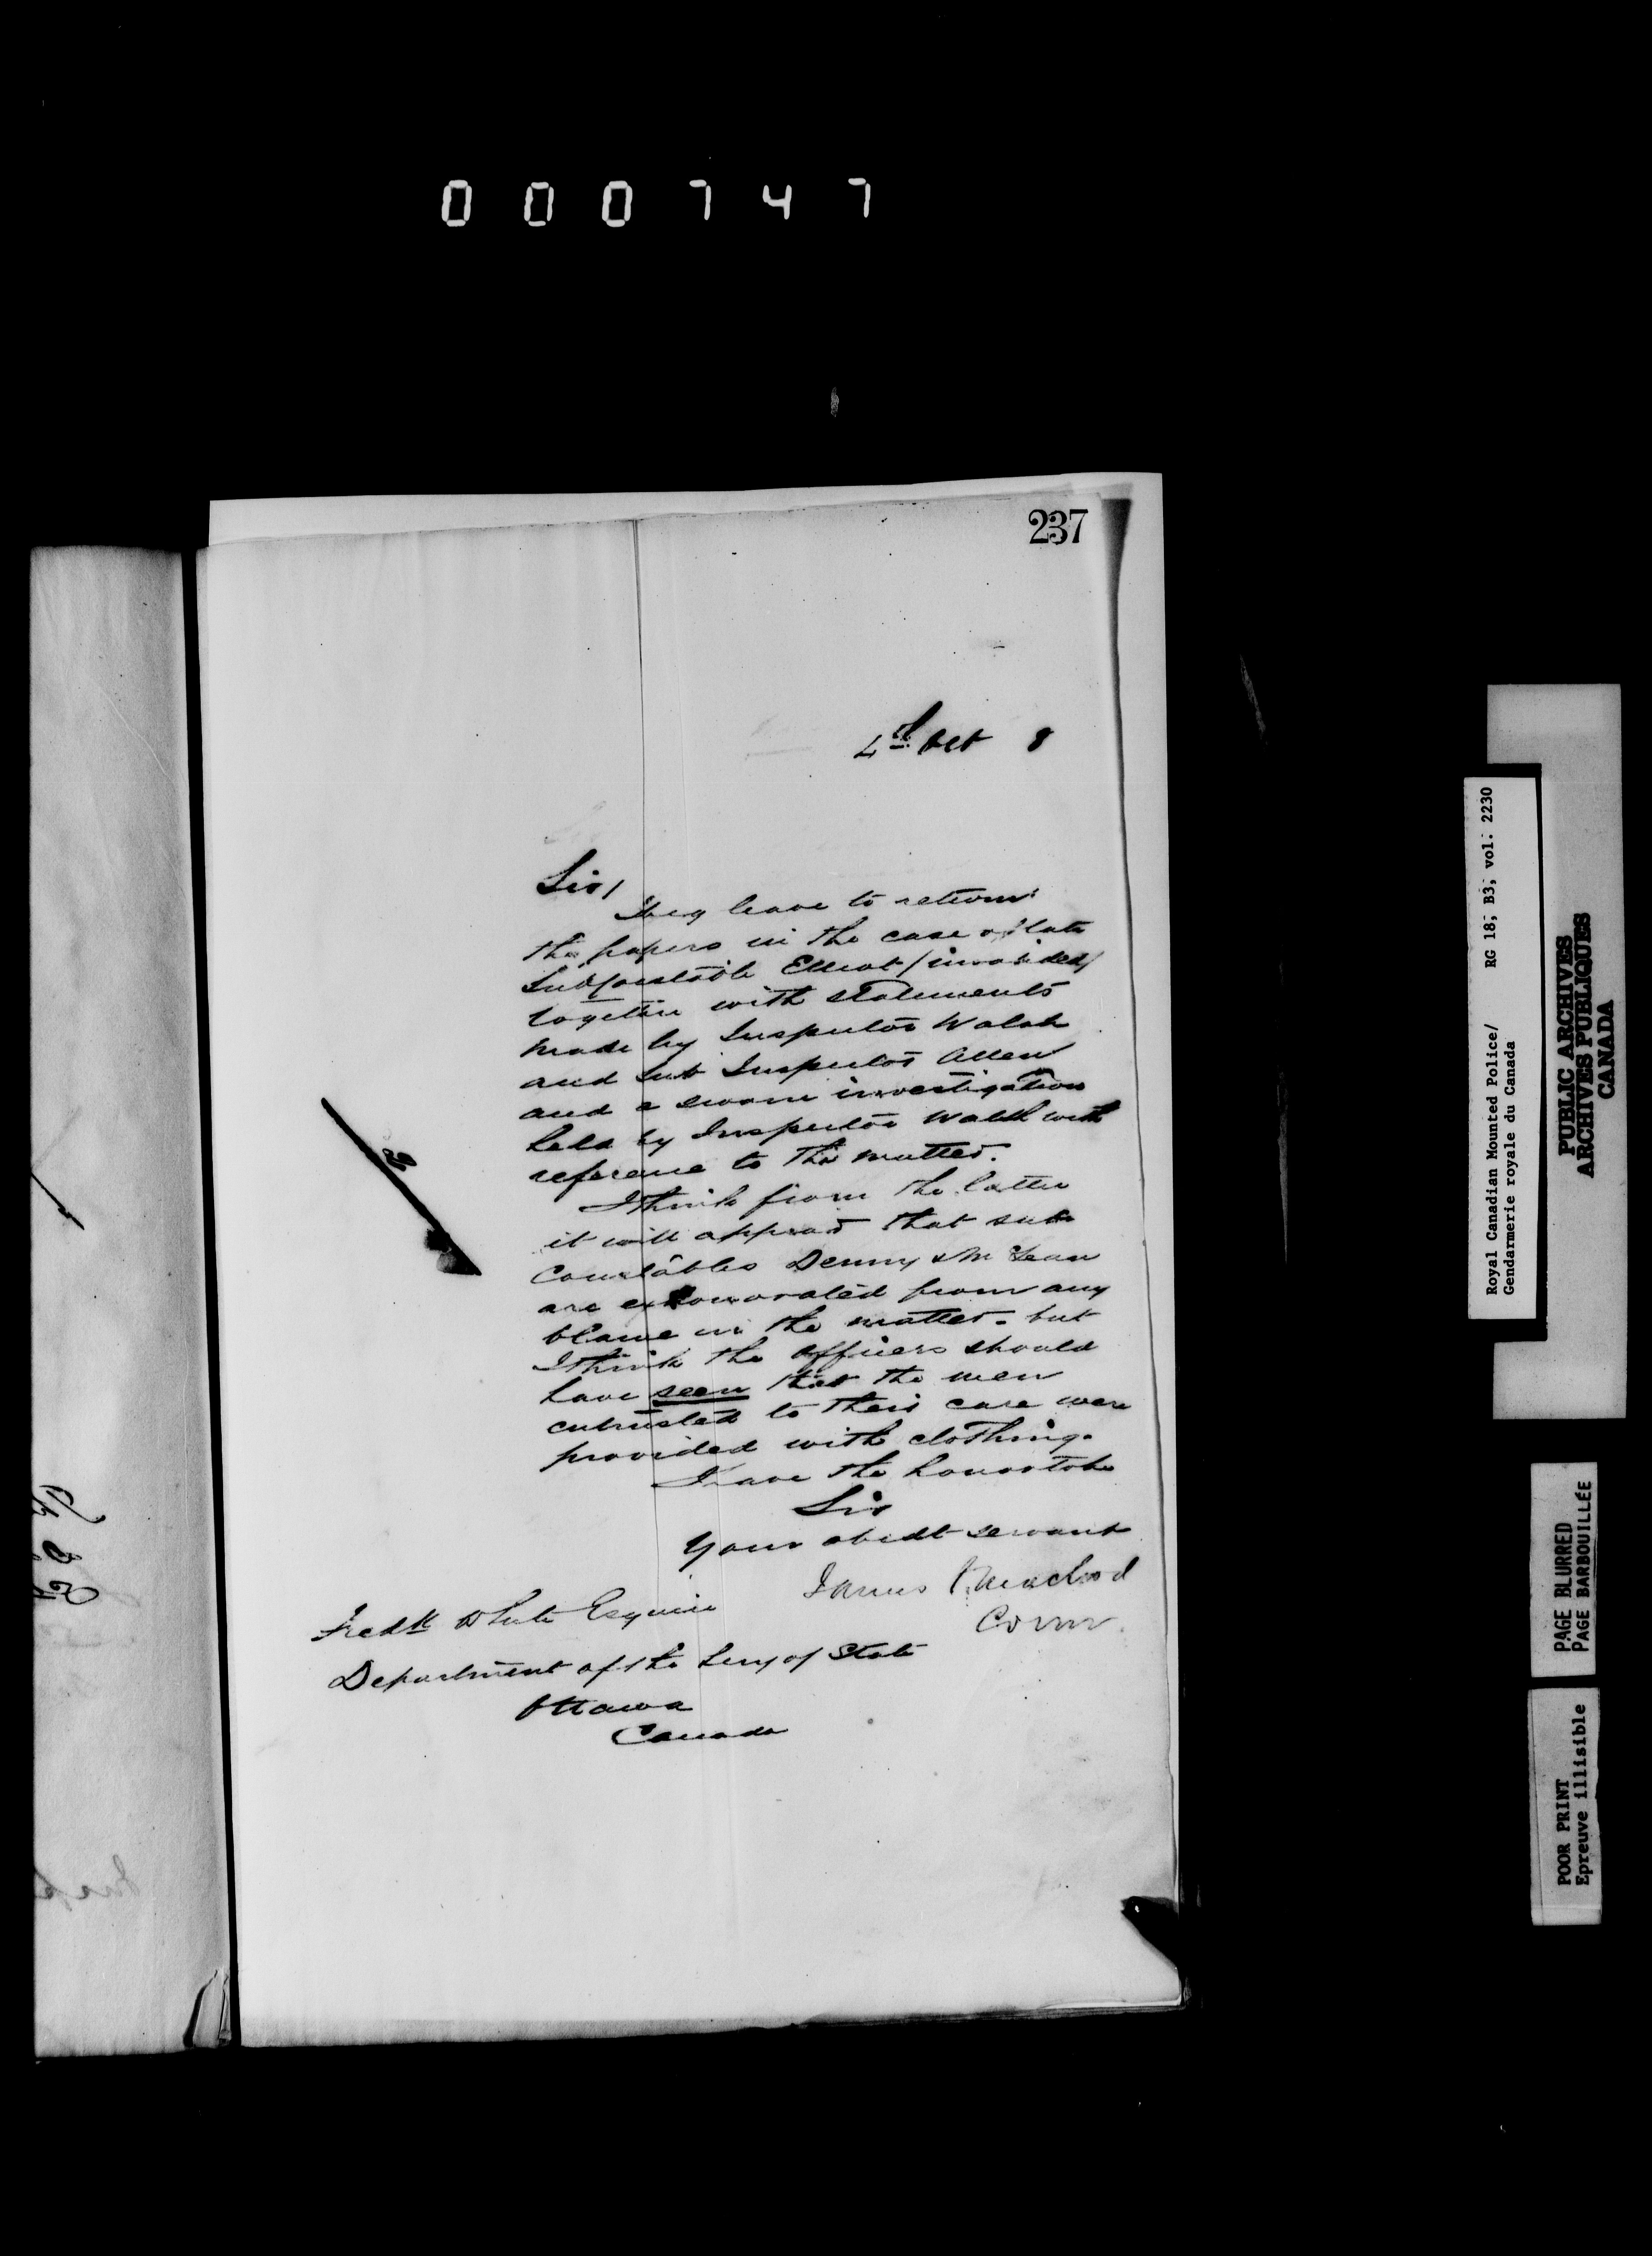 000747
237
Oct 8
Sir/
I beg leave to return
the papers in the case of late
Sub Constable Elliot (invalided)
together with statements
made by Inspector Walsh
and Sub Inspector Allen
and a sworn investigation
held by Inspector Walsh with
reference to the matter.
I think from the latter
it will appear that sub
Constables Denny & McLean
are exhonorated from any
blame in the matter - but
I think the officers should
have seen that the men
entrusted to their care were
provided with clothing.
I have the honor to be
Sir
Your obedt servant
James F Macleod
Comr.
Fredk White Esquire
Department of the Secy of State
Ottawa
Canada
Royal Canadian Mounted Police/ RG 18; B3; vol. 2230
Gendarmerie royale du Canada
PUBLIC ARCHIVES
ARCHIVES PUBLIQUES
CANADA
PAGE BLURRED
PAGE BARBOUILLÉE
POOR PRINT
Epreuve illisible